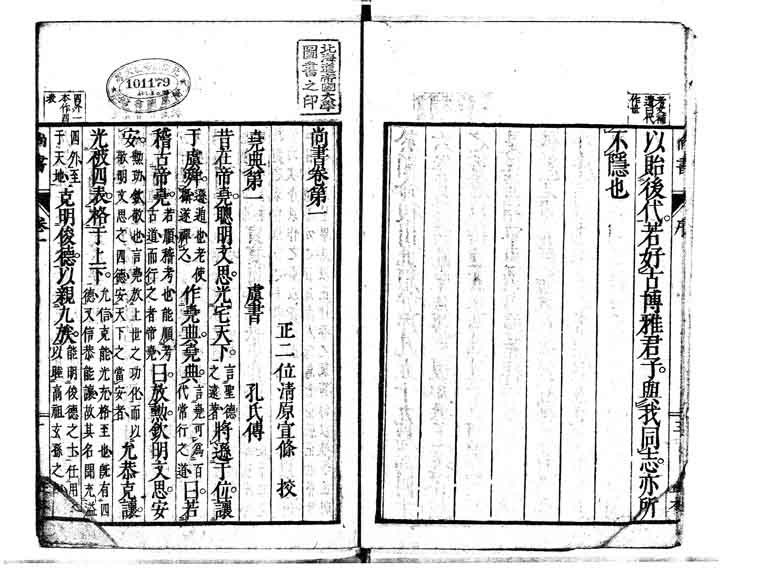 以貽後代。若好古博雅君子。與我同志。亦所
不隱也
尚書
序
三
考文補
遺百代
作世
北海道帝國大學
圖書之印
101179
尚書卷第一
正二位清原宣條 校
堯典第一 虞書 孔氏傳
昔在帝堯。聰明文思。光宅天下。言聖德之遠著將遜于位。讓
于虞舜。遜遁也老使攝遂禪之作堯典堯典言堯可爲百代常行之道曰若
稽古帝堯。若順稽考也能順考古道而行之者帝堯曰放勳。欽明文思。安
安勲功欽敬也言堯放上世之功化而以敬明文思之四德安天下之當安者允恭克讓
光被四表。格于上下。允信克能光充格至也既有四德又信恭能讓故其名聞充溢
四外至于天地克明俊德。以親九族。能明俊德之士任用之以睦高祖玄孫之
四外一
本作四
表
尚書
卷一
一